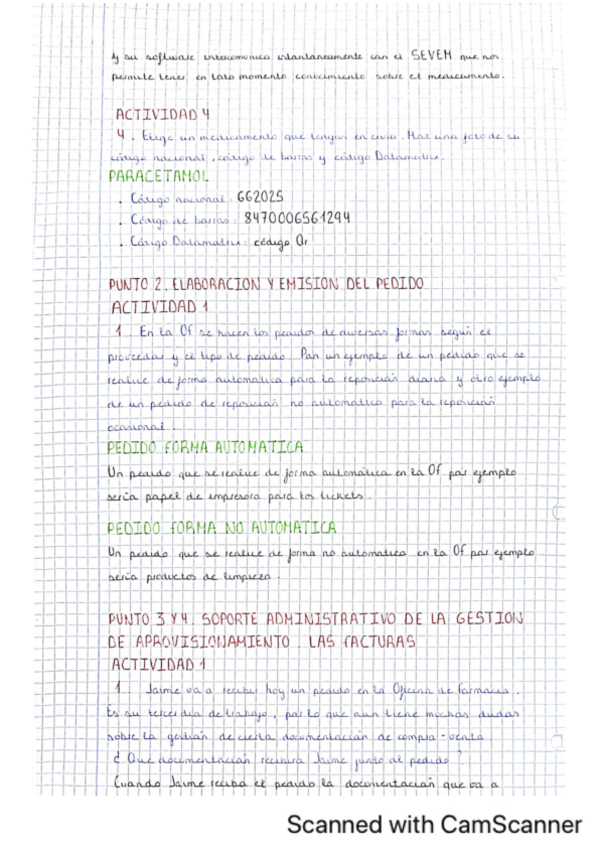 y su software intercomunica instantáneamente con el SEVEM que nos
permite tener en todo momento conocimiento sobre el medicamento.
ACTIVIDAD 4
4. Elige un medicamento que tengas en casa. Haz una foto de su
código nacional, código de barras y código Datamatrix.
PARACETAMOL
. Código nacional: 662025
. Código de barras: 8470006561294
. Código Datamatrix: código Qr
PUNTO 2. ELABORACION Y EMISION DEL PEDIDO
ACTIVIDAD 1
1. En la Of se hacen los pedidos de diversas formas según el
proveedor y el tipo de pedido. Pon un ejemplo de un pedido que se
realice de forma automática para la reposición diaria y otro ejemplo
de un pedido de reposición no automática para la reposición
ocasional.
PEDIDO FORMA AUTOMATICA
Un pedido que se realice de forma automática en la Of por ejemplo
sería papel de impresora para los tickets.
PEDIDO FORMA NO AUTOMATICA
Un pedido que se realice de forma no automatica en la Of por ejemplo
sería productos de limpieza.
PUNTO 3 Y 4. SOPORTE ADMINISTRATIVO DE LA GESTION
DE APROVISIONAMIENTO. LAS FACTURAS
ACTIVIDAD 1
1. Jaime va a recibir hoy un pedido en la Oficina de farmacia.
Es su tercer día de trabajo, por lo que aun tiene muchas dudas
sobre la gestión de cierta documentación de compra-venta
¿Que documentación recibirá Jaime junto al pedido?
Cuando Jaime reciba el pedido la documentación que va a
Scanned with CamScanner